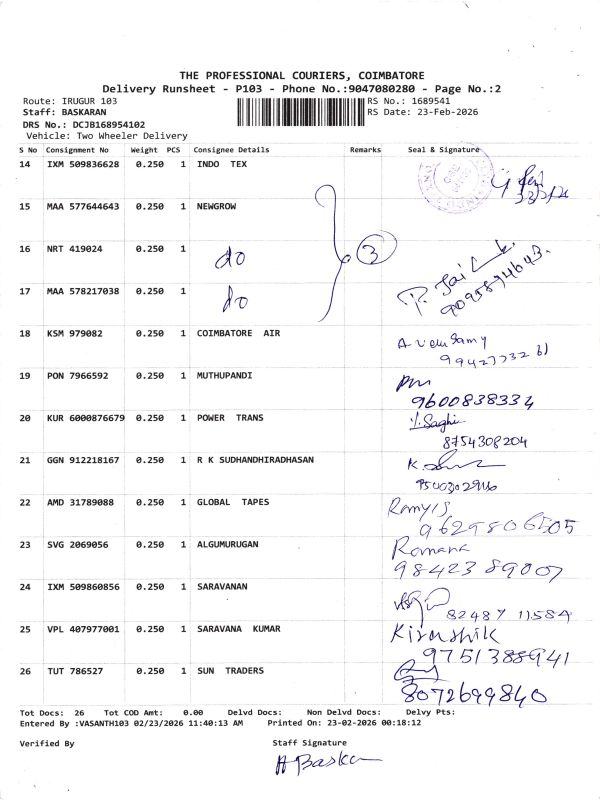 THE PROFESSIONAL COURIERS, COIMBATORE
Delivery Runsheet - P103 - Phone No.:9047080280 - Page No.:2
Route: IRUGUR 103 RS No.: 1689541
Staff: BASKARAN RS Date: 23-Feb-2026
DRS No.: DCJB168954102
Vehicle: Two Wheeler Delivery
S No Consignment No Weight PCS Consignee Details Remarks Seal & Signature
14 IXM 509836628 0.250 1 INDO TEX
15 MAA 577644643 0.250 1 NEWGROW
16 NRT 419024 0.250 1 do 3
17 MAA 578217038 0.250 1 do
18 KSM 979082 0.250 1 COIMBATORE AIR
19 PON 7966592 0.250 1 MUTHUPANDI
9600838334
20 KUR 6000876679 0.250 1 POWER TRANS
8754308204
21 GGN 912218167 0.250 1 R K SUDHANDHIRADHASAN
22 AMD 31789088 0.250 1 GLOBAL TAPES
23 SVG 2069056 0.250 1 ALGUMURUGAN Romana
9842389007
24 IXM 509860856 0.250 1 SARAVANAN
82487 11584
25 VPL 407977001 0.250 1 SARAVANA KUMAR
9751388941
26 TUT 786527 0.250 1 SUN TRADERS
8072699840
Tot Docs: 26 Tot COD Amt: 0.00 Delvd Docs: Non Delvd Docs: Delvy Pts:
Entered By :VASANTH103 02/23/2026 11:40:13 AM Printed On: 23-02-2026 00:18:12
Verified By Staff Signature